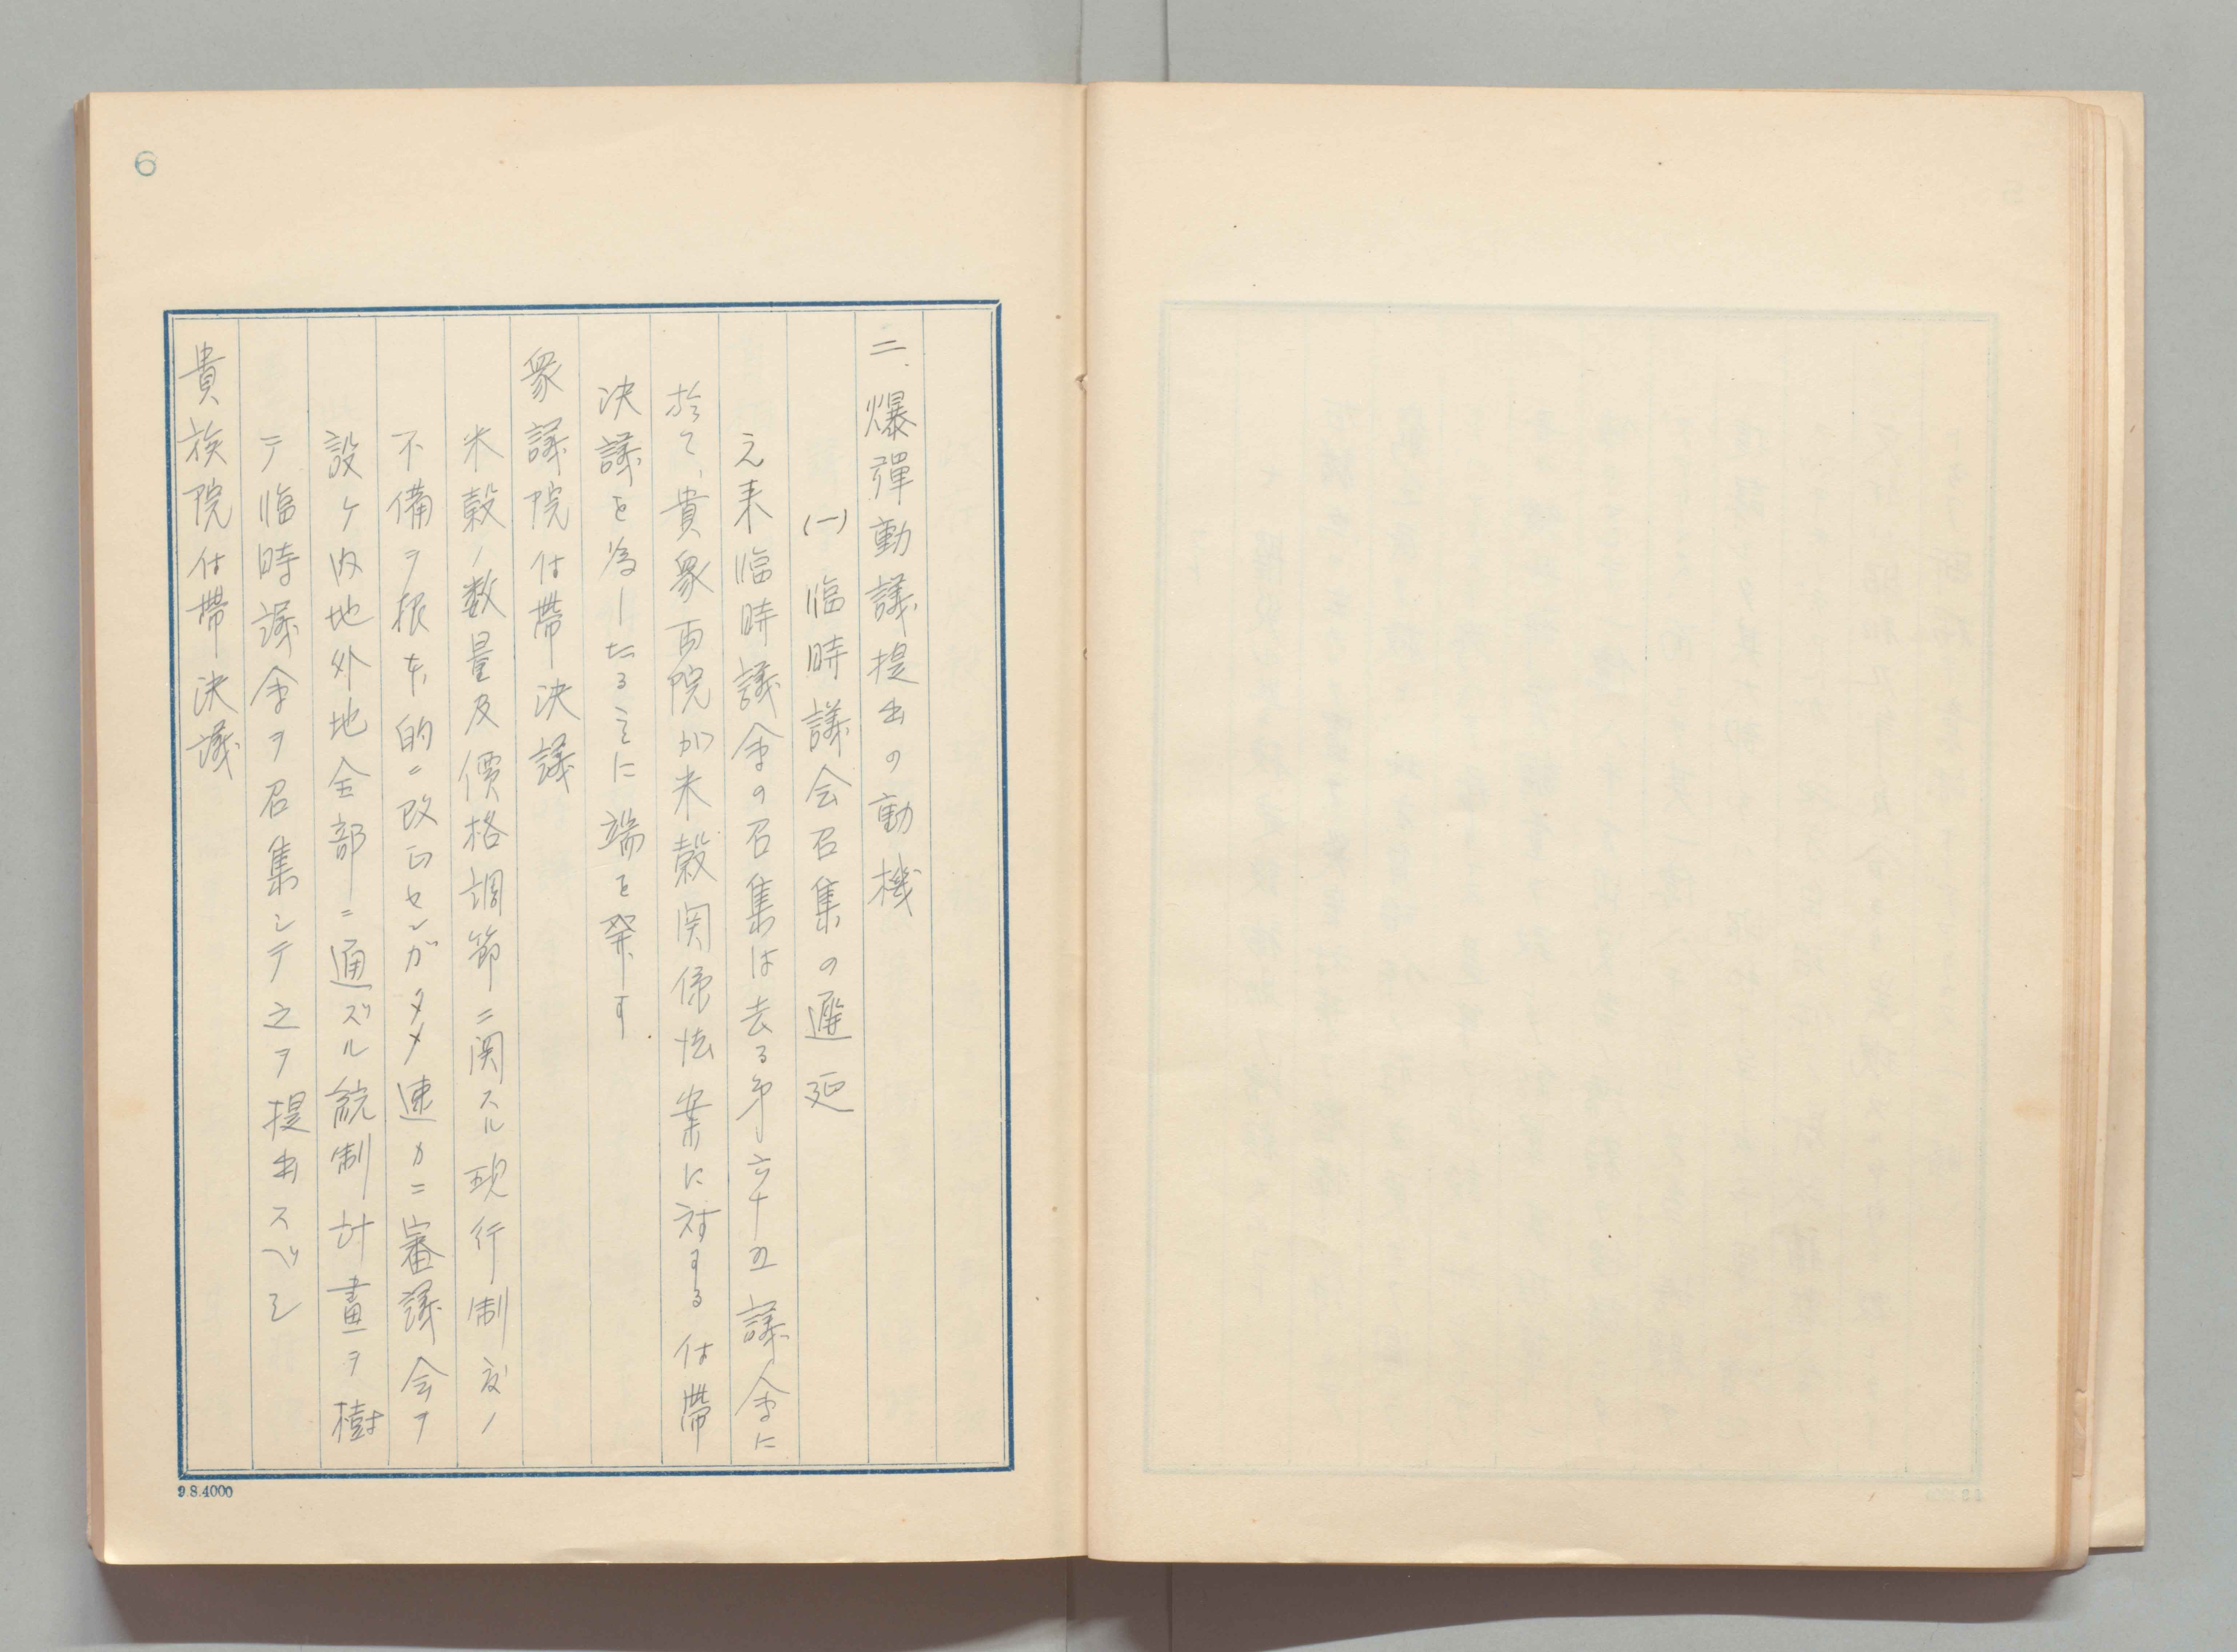 6
二、爆彈動議提出の動機
(一) 臨時議会召集の遲延
元来臨時議會の召集は去る第六十五議會に
於て、貴衆両院が米穀関係法案に対する付帯
決議を為したるに端を発す.
衆議院付帯決議
米穀ノ数量及價格調節ニ関スル現行制度ノ
不備ヲ根本的ニ改正センガタメ速カニ審議会ヲ
設ケ内地外地全部ニ通ズル統制計畫ヲ樹
テ臨時議會ヲ召集シテ之ヲ提出スベシ
貴族院付帯決議
9.8.4000